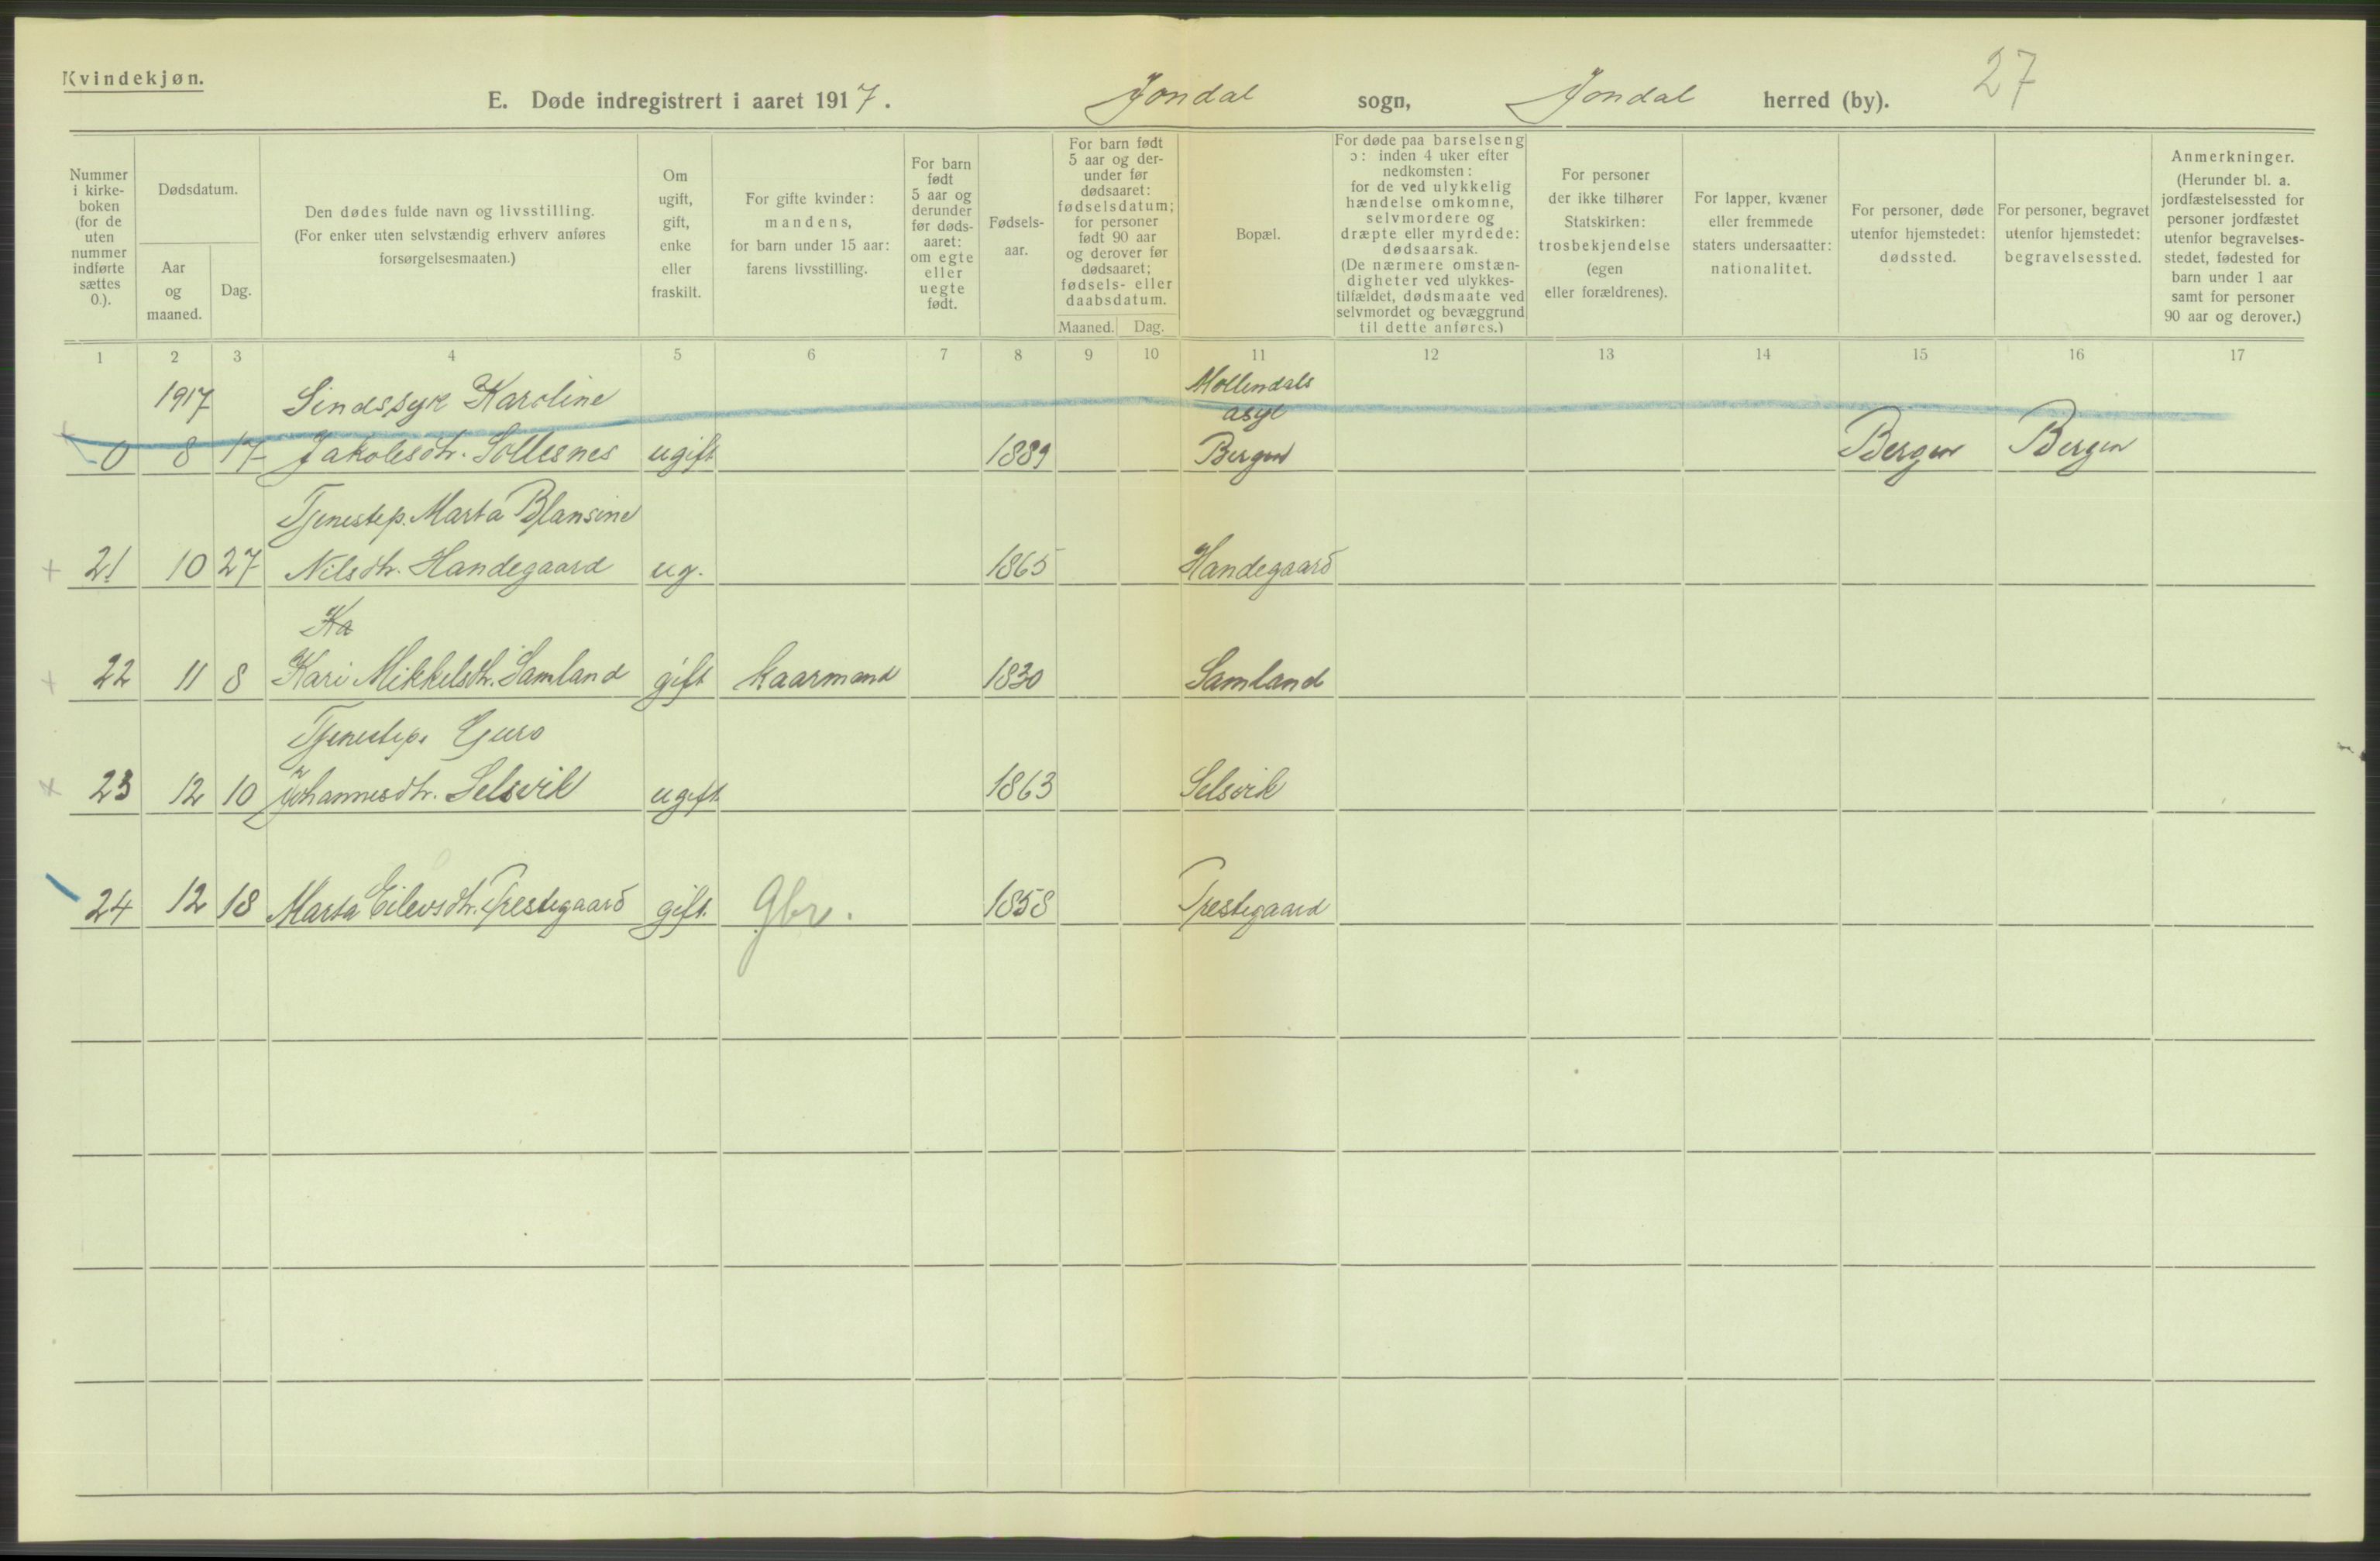 Kvindekjøn.
E. Døde indregistrert i aaret 1917. Jondal sogn, Jondal herred (by). 27
Nummer
i kirke-
boken
(for de
uten
nummer
indførte
sættes
0.).
Dødsdatum.
Aar
og
maaned.
Dag.
Den dødes fulde navn og livsstilling.
(For enker uten selvstændig erhverv anføres
forsørgelsesmaaten.)
Om
ugift,
gift,
enke
eller
fraskilt.
For gifte kvinder:
mandens,
for barn under 15 aar:
farens livsstilling.
For barn
født
5 aar og
derunder
før døds-
aaret:
om egte
eller
uegte
født.
Fødsels-
aar.
For barn født
5 aar og der-
under før
dødsaaret:
fødselsdatum;
for personer
født 90 aar
og derover før
dødsaaret;
fødsels- eller
daabsdatum.
Maaned. Dag.
Bopæl.
For døde paa barselseng
ɔ: inden 4 uker efter
nedkomsten:
for de ved ulykkelig
hændelse omkomne,
selvmordere og
dræpte eller myrdede:
dødsaarsak.
(De nærmere omstæn-
digheter ved ulykkes-
tilfældet, dødsmaate ved
selvmordet og bevæggrund
til dette anføres.)
For personer
der ikke tilhører
Statskirken:
trosbekjendelse
(egen
eller forældrenes).
For lapper, kvæner
eller fremmede
staters undersaatter:
nationalitet.
For personer, døde
utenfor hjemstedet:
dødssted.
For personer, begravet
utenfor hjemstedet:
begravelsessted.
Anmerkninger.
(Herunder bl. a.
jordfæstelsessted for
personer jordfæstet
utenfor begravelses-
stedet, fødested for
barn under 1 aar
samt for personer
90 aar og derover.)
1 2 3 4 5 6 7 8 9 10 11 12 13 14 15 16 17
1917 Sindssyk Karoline Møllendals
asyl
0 8 17 Jakobsdtr. Solesnes ugift 1889 Bergen Bergen Bergen
Tjenestep. Marta Blansine
21 10 27 Nilsdtr. Handegaard ug. 1865 Handegaard
Ka
22 11 8 Kari Mikkelsdtr. Samland gift kaarmand 1830 Samland
Tjenestep. Guro
23 12 10 Johannesdtr. Selsvik ugift 1863 Selsvik
24 12 18 Marta Eilevsdtr. Prestegaard gift. gbr. 1858 Prestegaard